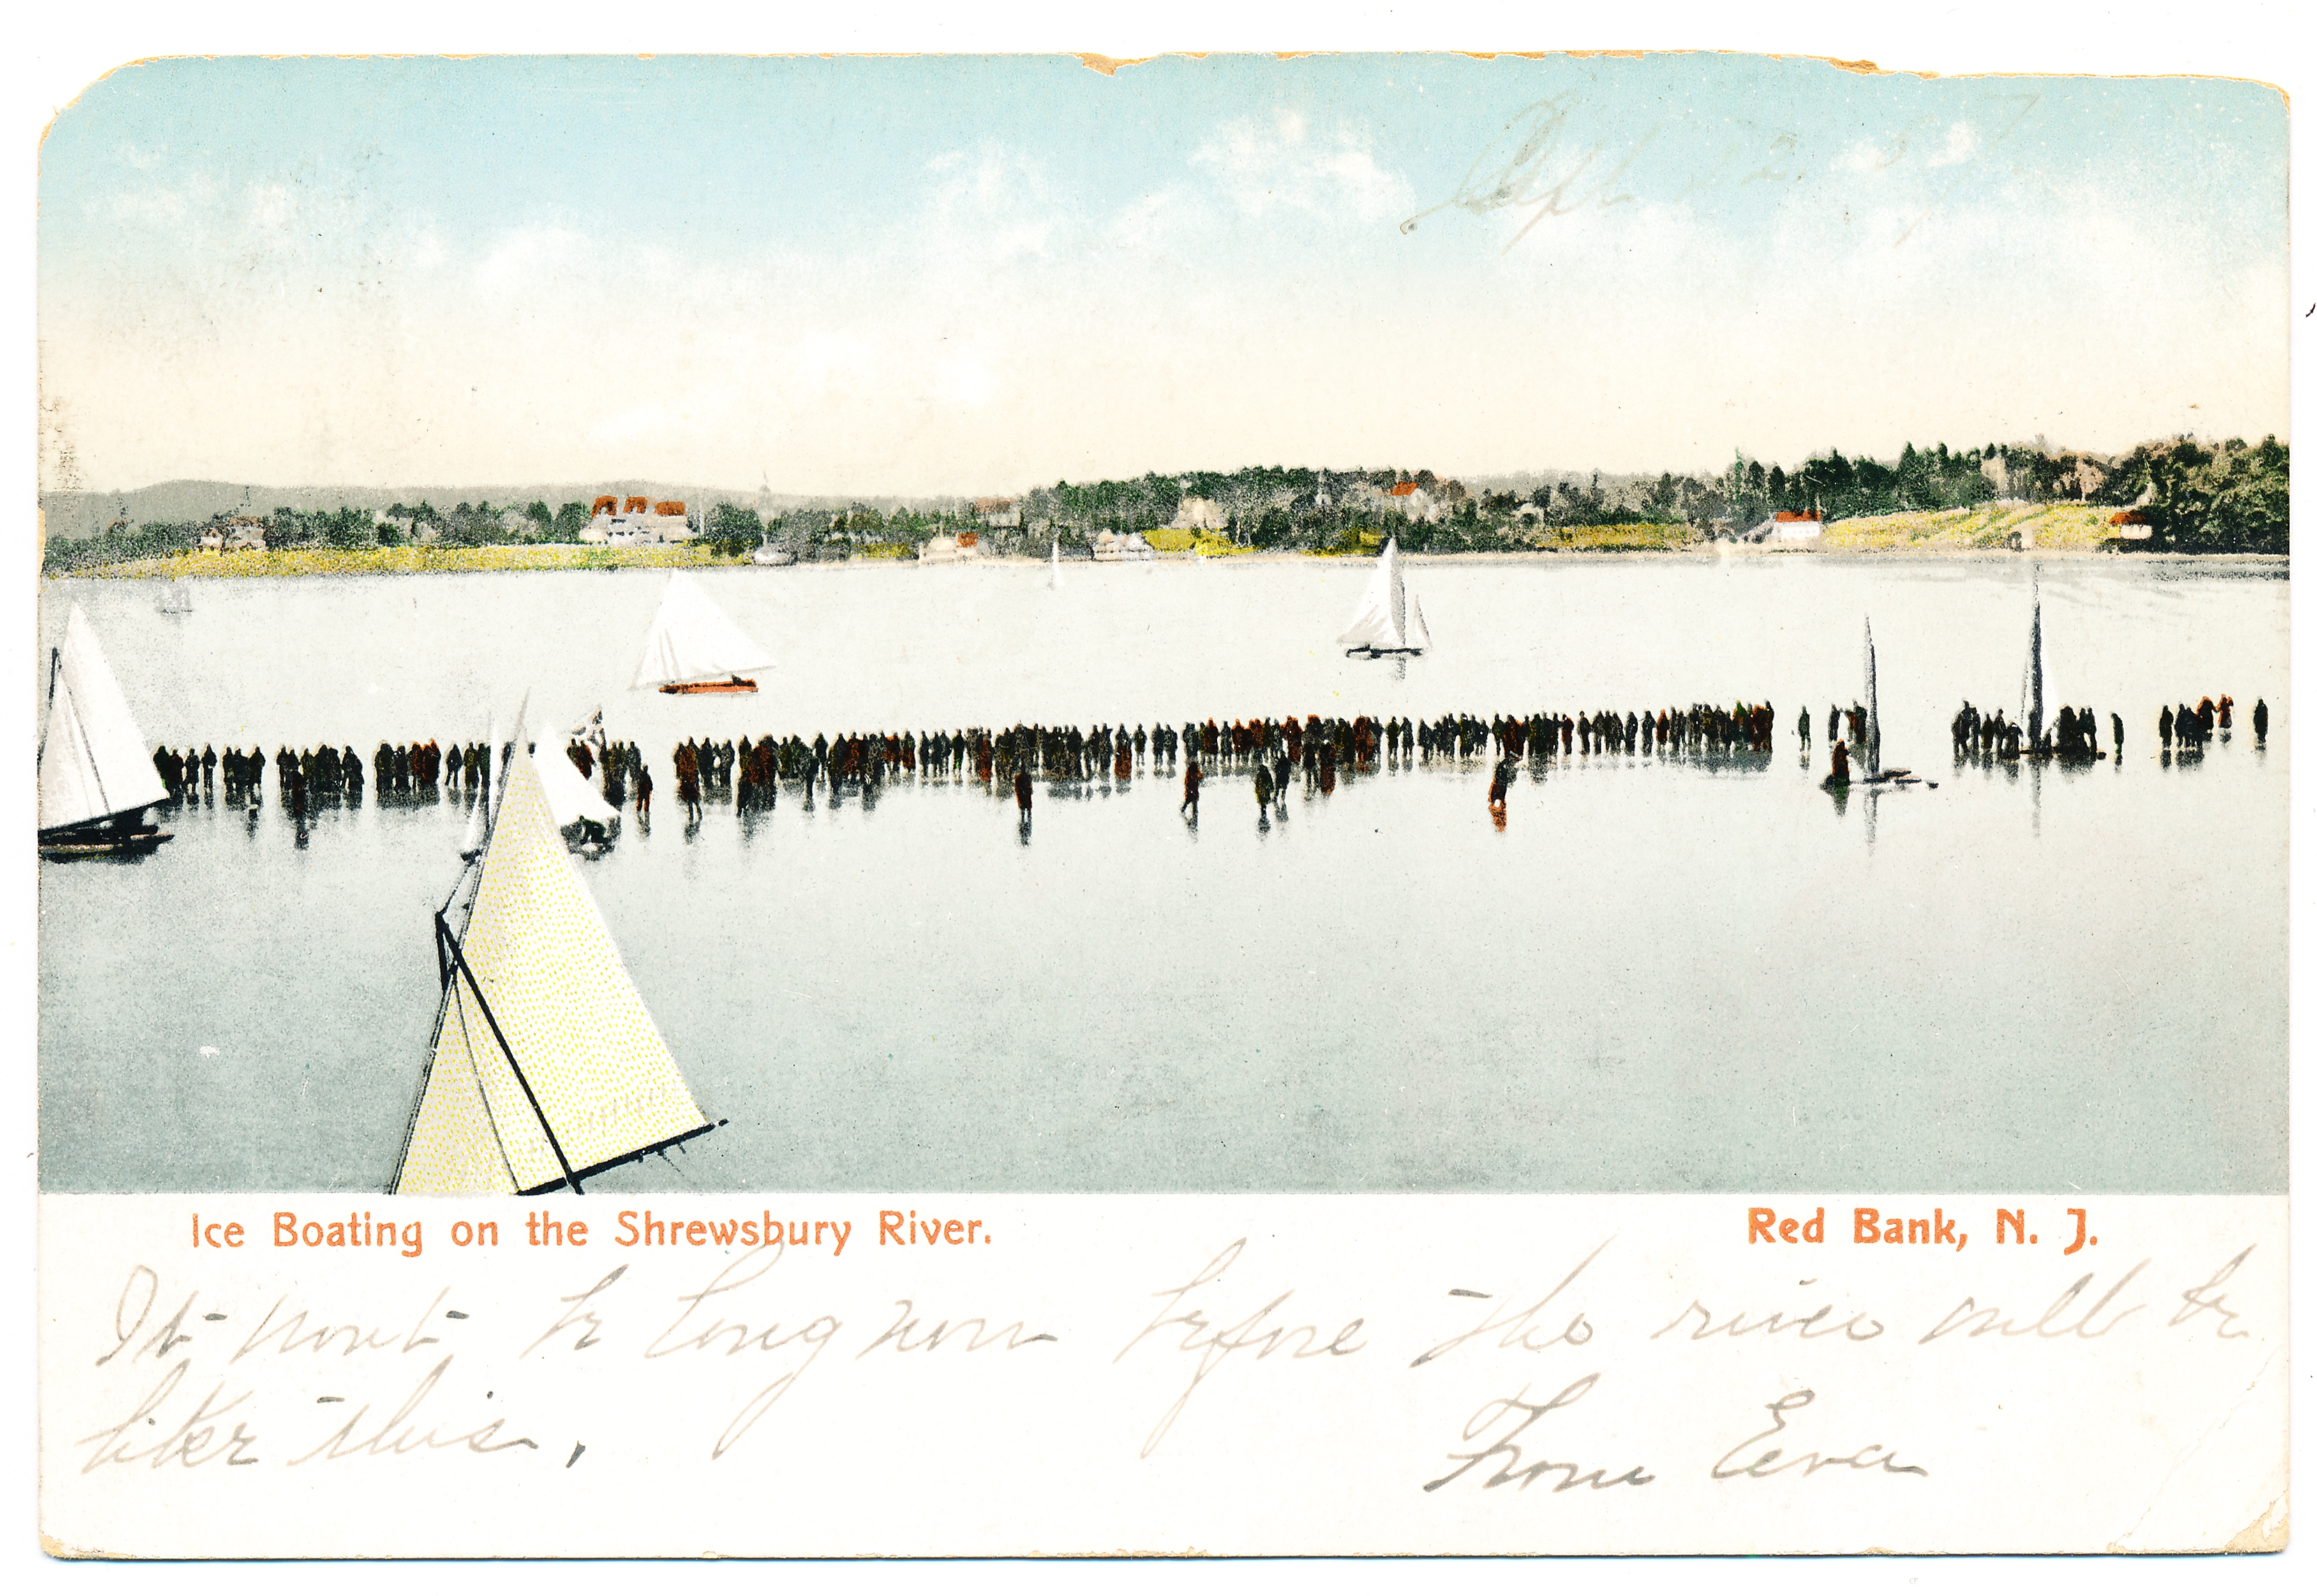 Sept 12.
Ice Boating on the Shrewsbury River. Red Bank, N. J.
It wont be long now before the river will be
like this.
From Eva